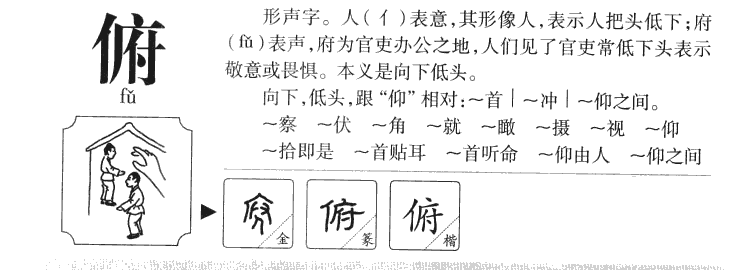 俯
fǔ
形声字。人(亻)表意，其形像人，表示人把头低下；府
(fǔ)表声，府为官吏办公之地，人们见了官吏常低下头表示
敬意或畏惧。本义是向下低头。
向下，低头，跟“仰”相对：～首｜～冲｜～仰之间。
～察 ～伏 ～角 ～就 ～瞰 ～摄 ～视 ～仰
～拾即是 ～首贴耳 ～首听命 ～仰由人 ～仰之间
金 俯 篆 俯 楷